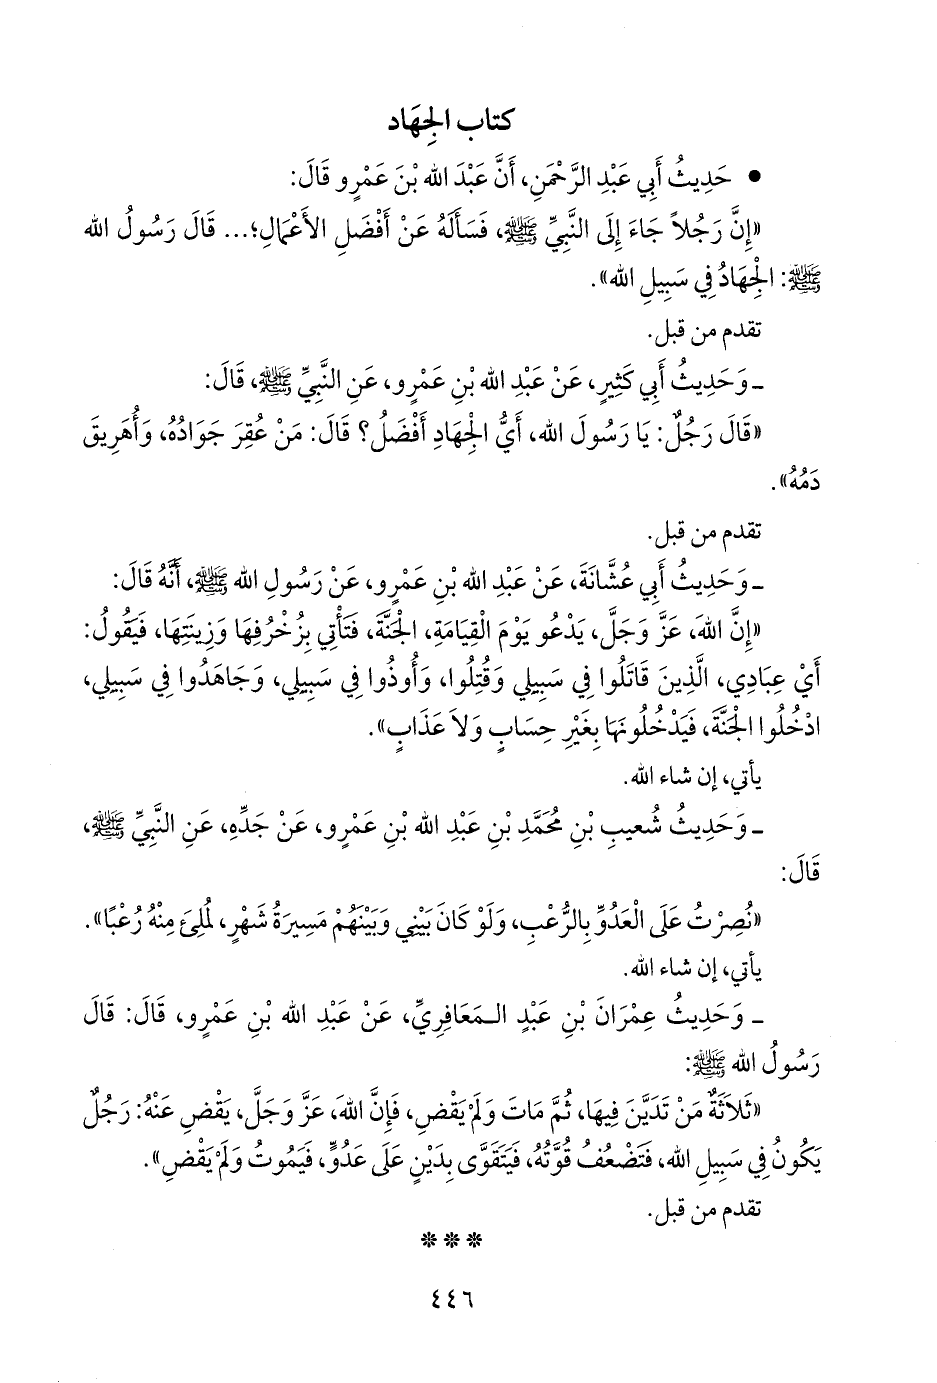 كتاب الجِهَاد
• حَدِيثُ أَبِي عَبْدِ الرَّحْمَنِ، أَنَّ عَبْدَ الله بْنَ عَمْرٍو قَالَ:
«إِنَّ رَجُلاً جَاءَ إِلَى النَّبِيِّ ﷺ، فَسَأَلَهُ عَنْ أَفْضَلِ الأَعْمَالِ؛... قَالَ رَسُولُ الله
ﷺ: الْجِهَادُ فِي سَبِيلِ الله».
تقدم من قبل.
ـ وَحَدِيثُ أَبِي كَثِيرٍ، عَنْ عَبْدِ الله بْنِ عَمْرٍو، عَنِ النَّبِيِّ ﷺ، قَالَ:
«قَالَ رَجُلٌ: يَا رَسُولَ الله، أَيُّ الْجِهَادِ أَفْضَلُ؟ قَالَ: مَنْ عُقِرَ جَوَادُهُ، وَأُهَرِيقَ
دَمُهُ».
تقدم من قبل.
ـ وَحَدِيثُ أَبِي عُشَّانَةَ، عَنْ عَبْدِ الله بْنِ عَمْرٍو، عَنْ رَسُولِ الله ﷺ، أَنَّهُ قَالَ:
«إِنَّ اللهَ، عَزَّ وَجَلَّ، يَدْعُو يَوْمَ الْقِيَامَةِ، الْجَنَّةَ، فَتَأْتِي بِزُخْرُفِهَا وَزِينَتِهَا، فَيَقُولُ:
أَيْ عِبَادِي، الَّذِينَ قَاتَلُوا فِي سَبِيلِي وَقُتِلُوا، وَأُوذُوا فِي سَبِيلِي، وَجَاهَدُوا فِي سَبِيلِي،
ادْخُلُوا الْجَنَّةَ، فَيَدْخُلُونَهَا بِغَيْرِ حِسَابٍ وَلاَ عَذَابٍ».
يأتي، إن شاء الله.
ـ وَحَدِيثُ شُعيبِ بْنِ مُحَمَّدِ بْنِ عَبْدِ الله بْنِ عَمْرٍو، عَنْ جَدِّهِ، عَنِ النَّبِيِّ ﷺ،
قَالَ:
«نُصِرْتُ عَلَى الْعَدُوِّ بِالرُّعْبِ، وَلَوْ كَانَ بَيْنِي وَبَيْنَهُمْ مَسِيرَةُ شَهْرٍ، لَمُلِئَ مِنْهُ رُعْبًا».
يأتي، إن شاء الله.
ـ وَحَدِيثُ عِمْرَانَ بْنِ عَبْدٍ الـمَعَافِرِيِّ، عَنْ عَبْدِ الله بْنِ عَمْرٍو، قَالَ: قَالَ
رَسُولُ الله ﷺ:
«ثَلاَثَةٌ مَنْ تَدَيَّنَ فِيهَا، ثُمَّ مَاتَ وَلَمْ يَقْضِ، فَإِنَّ اللهَ، عَزَّ وَجَلَّ، يَقْضِ عَنْهُ: رَجُلٌ
يَكُونُ فِي سَبِيلِ الله، فَتَضْعُفُ قُوَّتُهُ، فَيَتَقَوَّى بِدَيْنٍ عَلَى عَدُوٍّ، فَيَمُوتُ وَلَمْ يَقْضِ».
تقدم من قبل.
***
٤٤٦